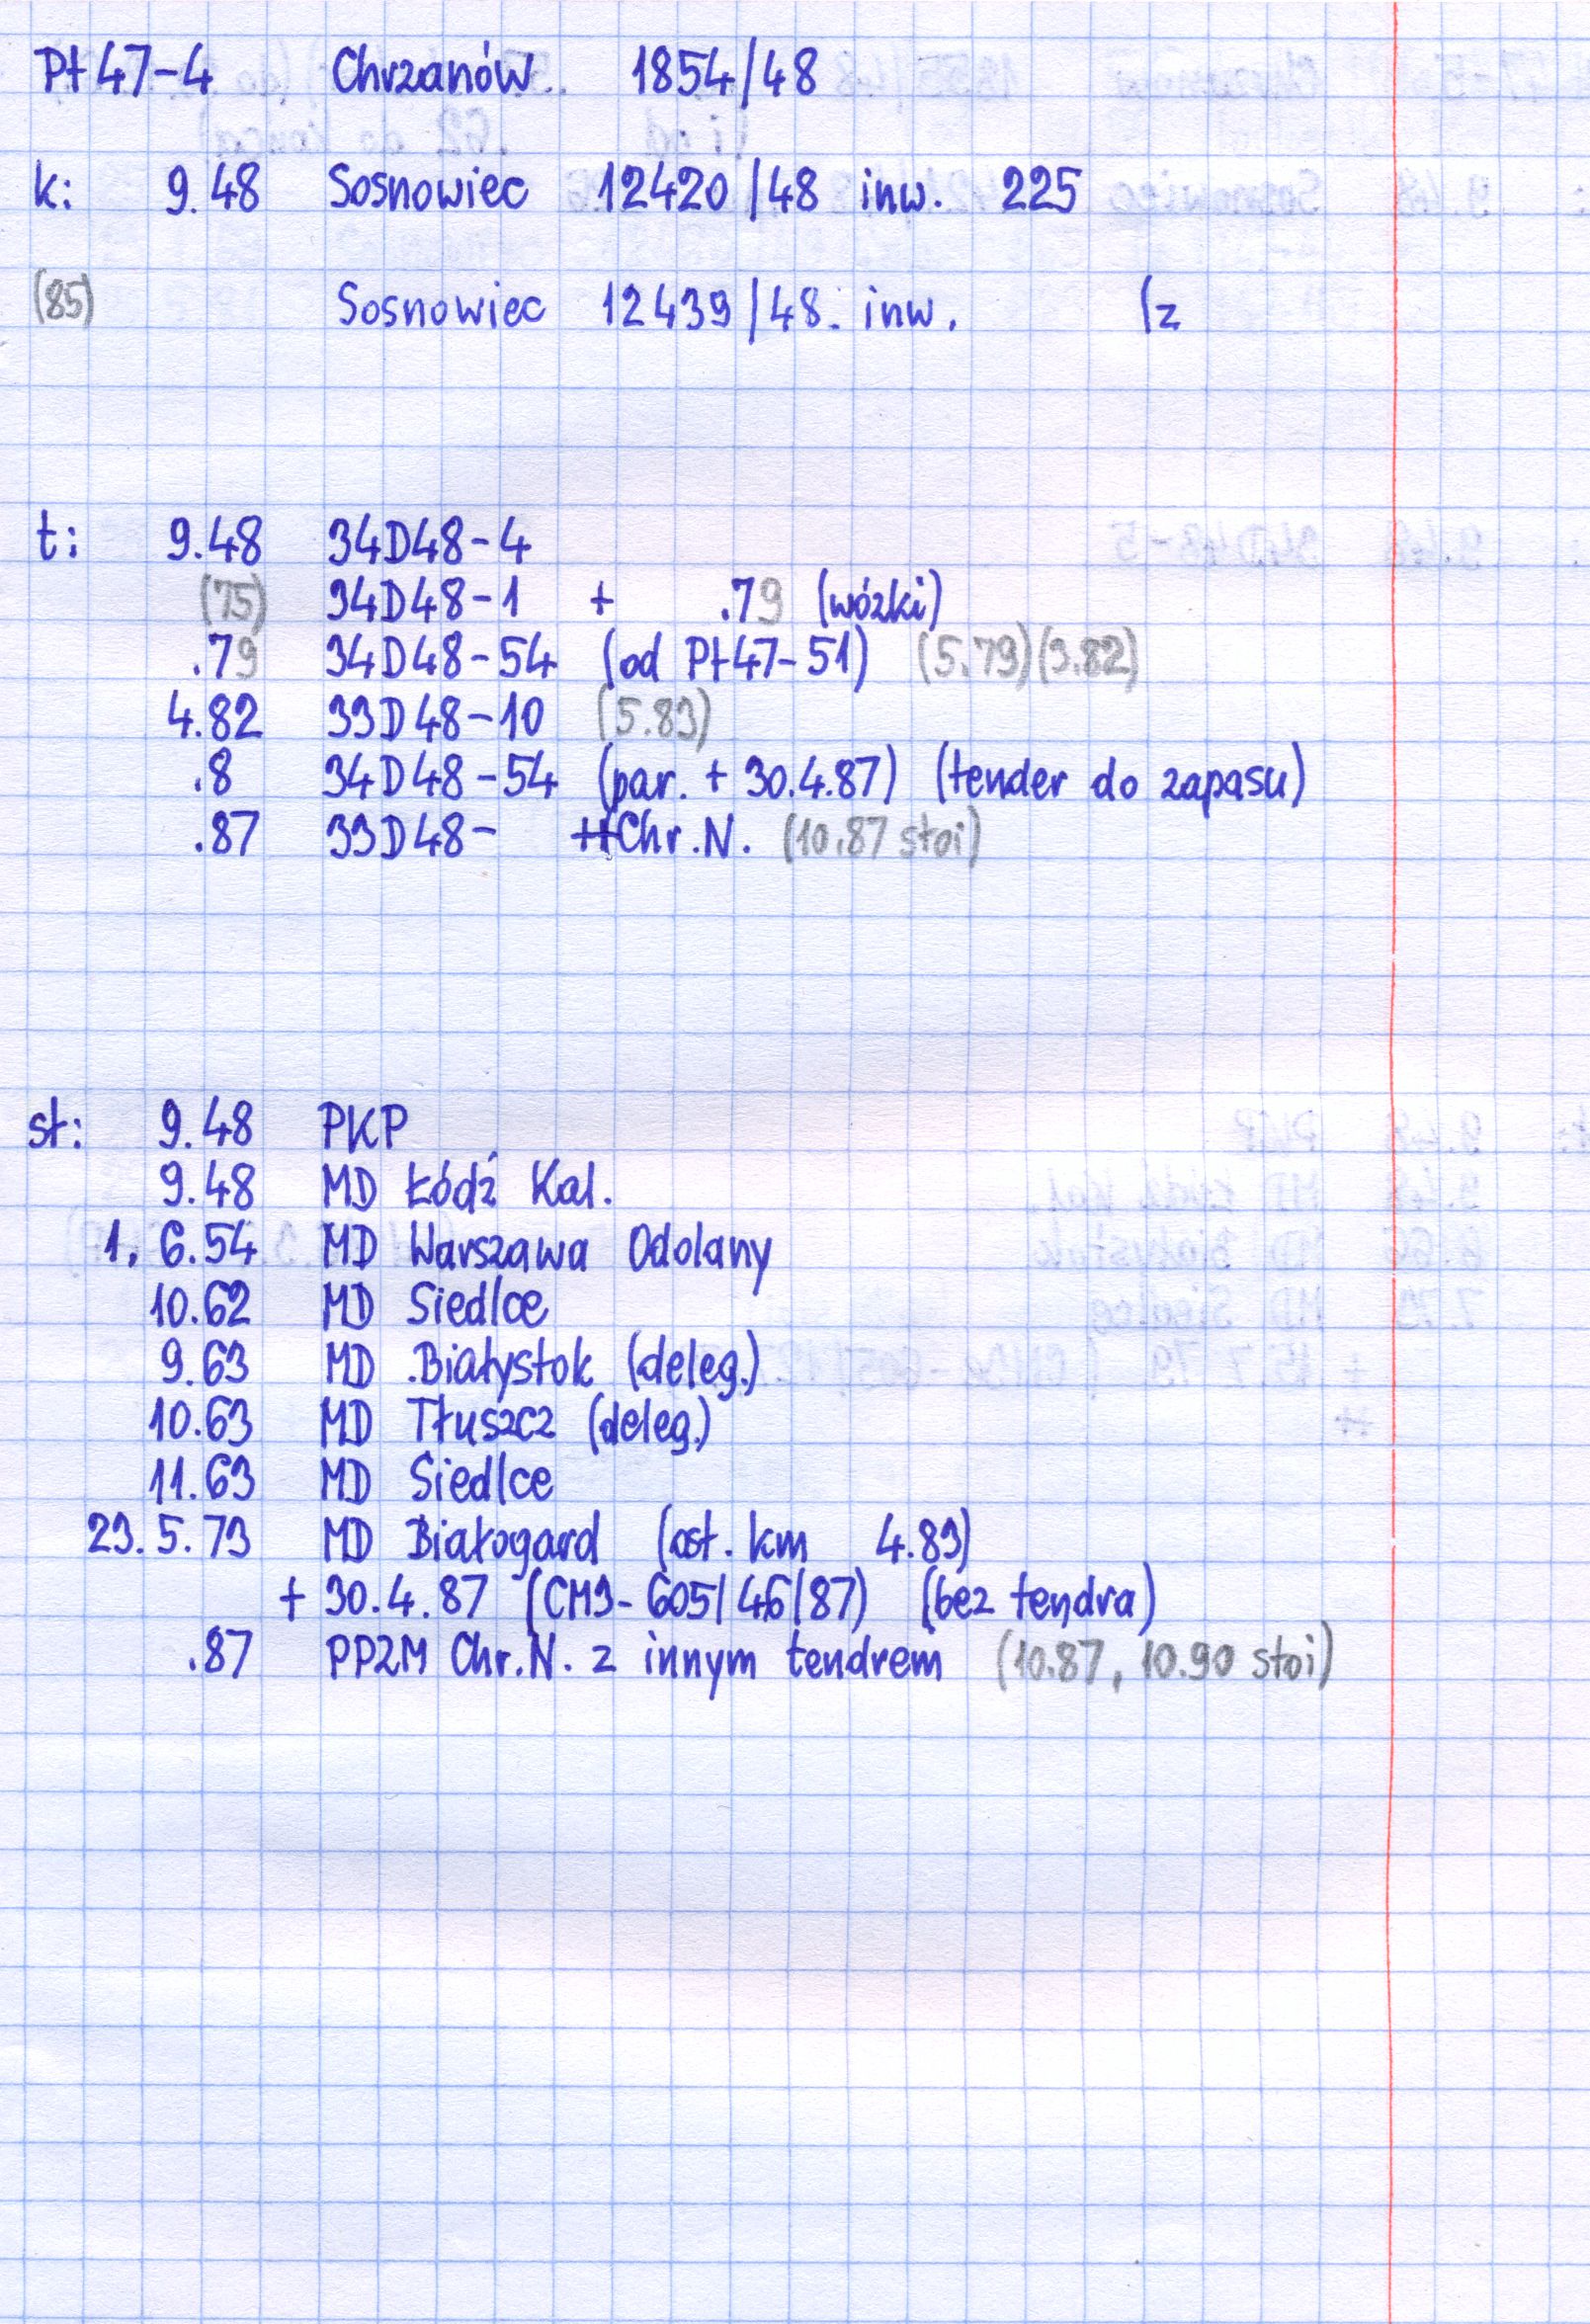 Pt47-4 Chrzanów 1854/48
k: 9.48 Sosnowiec 12420/48 inw. 225
(85) Sosnowiec 12439/48. inw. (z
t: 9.48 34D48-4
(75) 34D48-1 + .79 (wózki)
.79 34D48-54 (od Pt47-51) (5.79)(3.82)
4.82 33D48-10 (5.83)
.8 34D48-54 (par. + 30.4.87) (tender do zapasu)
.87 33D48- Chr.N. (10.87 stoi)
st: 9.48 PKP
9.48 MD Łódź Kal.
1, 6.54 MD Warszawa Odolany
10.62 MD Siedlce
9.63 MD Białystok (deleg.)
10.63 MD Tłuszcz (deleg.)
11.63 MD Siedlce
23.5.73 MD Białogard (ost. km 4.83)
+ 30.4.87 (CM3-605/46/87) (bez tendra)
.87 PP2M Chr.N. z innym tendrem (10.87, 10.90 stoi)